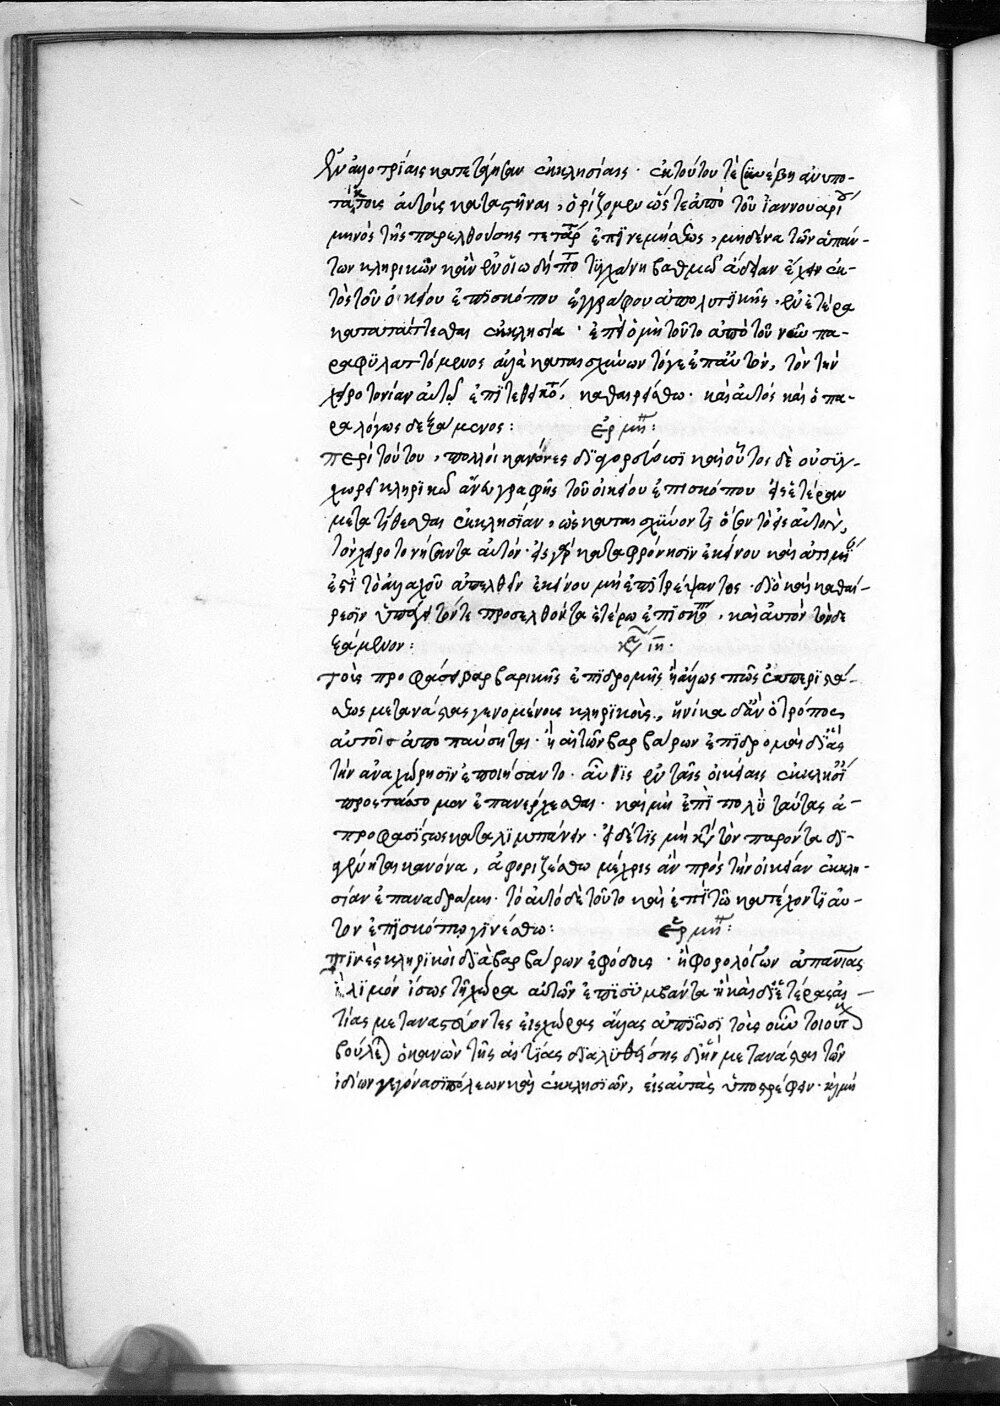 ἐν ἀλλοτρίαις κατετάγησαν ἐκκλησίαις· ἐκ τούτου τὲ συνέβη ἀνυπο-
τάκτους αὐτοὺς καταστῆναι, ὁρίζομεν ὥστε ἀπὸ τοῦ ἰαννουαρίου
μηνὸς τῆς παρελθούσης τετάρτης ἐπινεμήσεως, μηδένα τῶν ἁπάν-
των κληρικῶν κἂν ἐν οἵῳ δήποτε τυγχάνη βαθμῶ ἄδειαν ἔχειν ἐκ-
τὸς τοῦ οἰκείου ἐπισκόπου ἐγγράφου ἀπολυτικῆς, ἐν ἑτέρα
κατατάττεσθαι ἐκκλησία· ἐπεὶ ὁ μὴ τοῦτο ἀπὸ τοῦ νῦν πα-
ραφυλαττόμενος ἀλλὰ καταισχύνων τό γε ἐπ' αὐτόν, τὸν τὴν
χειροτονίαν αὐτῶ ἐπιτεθεικότα, καθαιρείσθω· καὶ αὐτὸς καὶ ὁ πα-
ραλόγως δεξάμενος: ἑρμη:
περὶ τούτου, πολλοὶ κανόνες διαγορεύουσι καὶ οὗτος δὲ οὐ συγ-
χωρεῖ κληρικῶ ἄνευ γραφῆς τοῦ οἰκείου ἐπισκόπου εἰς ἑτέραν
μετατίθεσθαι ἐκκλησίαν, ὡς καταισχύνοντι ὅσον τὸ εἰς αὐτὸν,
τὸν χειροτονήσαντα αὐτόν· εἰς γὰρ καταφρόνησιν ἐκείνου καὶ ἀτιμίαν
ἐστὶ τὸ ἀλλαχοῦ ἀπελθεῖν ἐκείνου μὴ ἐπιτρέψαντος· διὸ καὶ καθαί-
ρεσιν ὑπάγει τόν τε προσελθόντα ἑτέρω ἐπισκόπω, καὶ αὐτὸν τὸν δε
ξάμενον: κα ιη·
τοὺς προφάσει βαρβαρικῆς ἐπιδρομῆς ἢ ἄλλως πῶς ἐκ περιστά-
σεως μετανάστας γενομένους κληρικοὺς, ἡνίκα δ' ἂν ὁ τρόπος
αὐτοῖς ἀποπαύσηται· ἢ αἱ τῶν βαρβάρων ἐπιδρομαὶ δι' ἃς
τὴν ἀναχώρησιν ἐποιήσαντο· αὖθις ἐν ταῖς οἰκείαις ἐκκλησίαις
προστάσσομεν ἐπανέρχεσθαι· καὶ μὴ ἐπὶ πολὺ ταύτας ἀ-
προφασίστως καταλιμπάνειν· εἰ δέ τις μὴ κατὰ τὸν παρόντα δι-
αγένηται κανόνα, ἀφοριζέσθω μέχρις ἂν πρὸς τὴν οἰκείαν ἐκκλη-
σίαν ἐπαναδράμη· τὸ αὐτὸ δὲ τοῦτο καὶ ἐπὶ τῶ κατέχοντι αὐ-
τὸν ἐπισκόπω γινέσθω: ἑρμη:
τινὲς κληρικοὶ διὰ βαρβάρων ἐφόδους· ἢ φορολόγων ἀπανίας
ἢ λιμὸν ἴσως τῆ χώρα αὐτῶν ἐπισυμβάντα ἢ καὶ δι' ἑτέρας αἰ-
τίας μεταναστεύοντες εἰς χώρας ἄλλας ἀπιῶσι τοὺς οὖν τοιούτους
βούλεται ὁ κανὼν τῆς αἰτίας διαλυθείσης δι' ἣν μετανάσται τῶν
ἰδίων γεγόνασι πόλεων καὶ ἐκκλησιῶν, εἰς αὐτὰς ὑποστρέφειν· καὶ μὴ